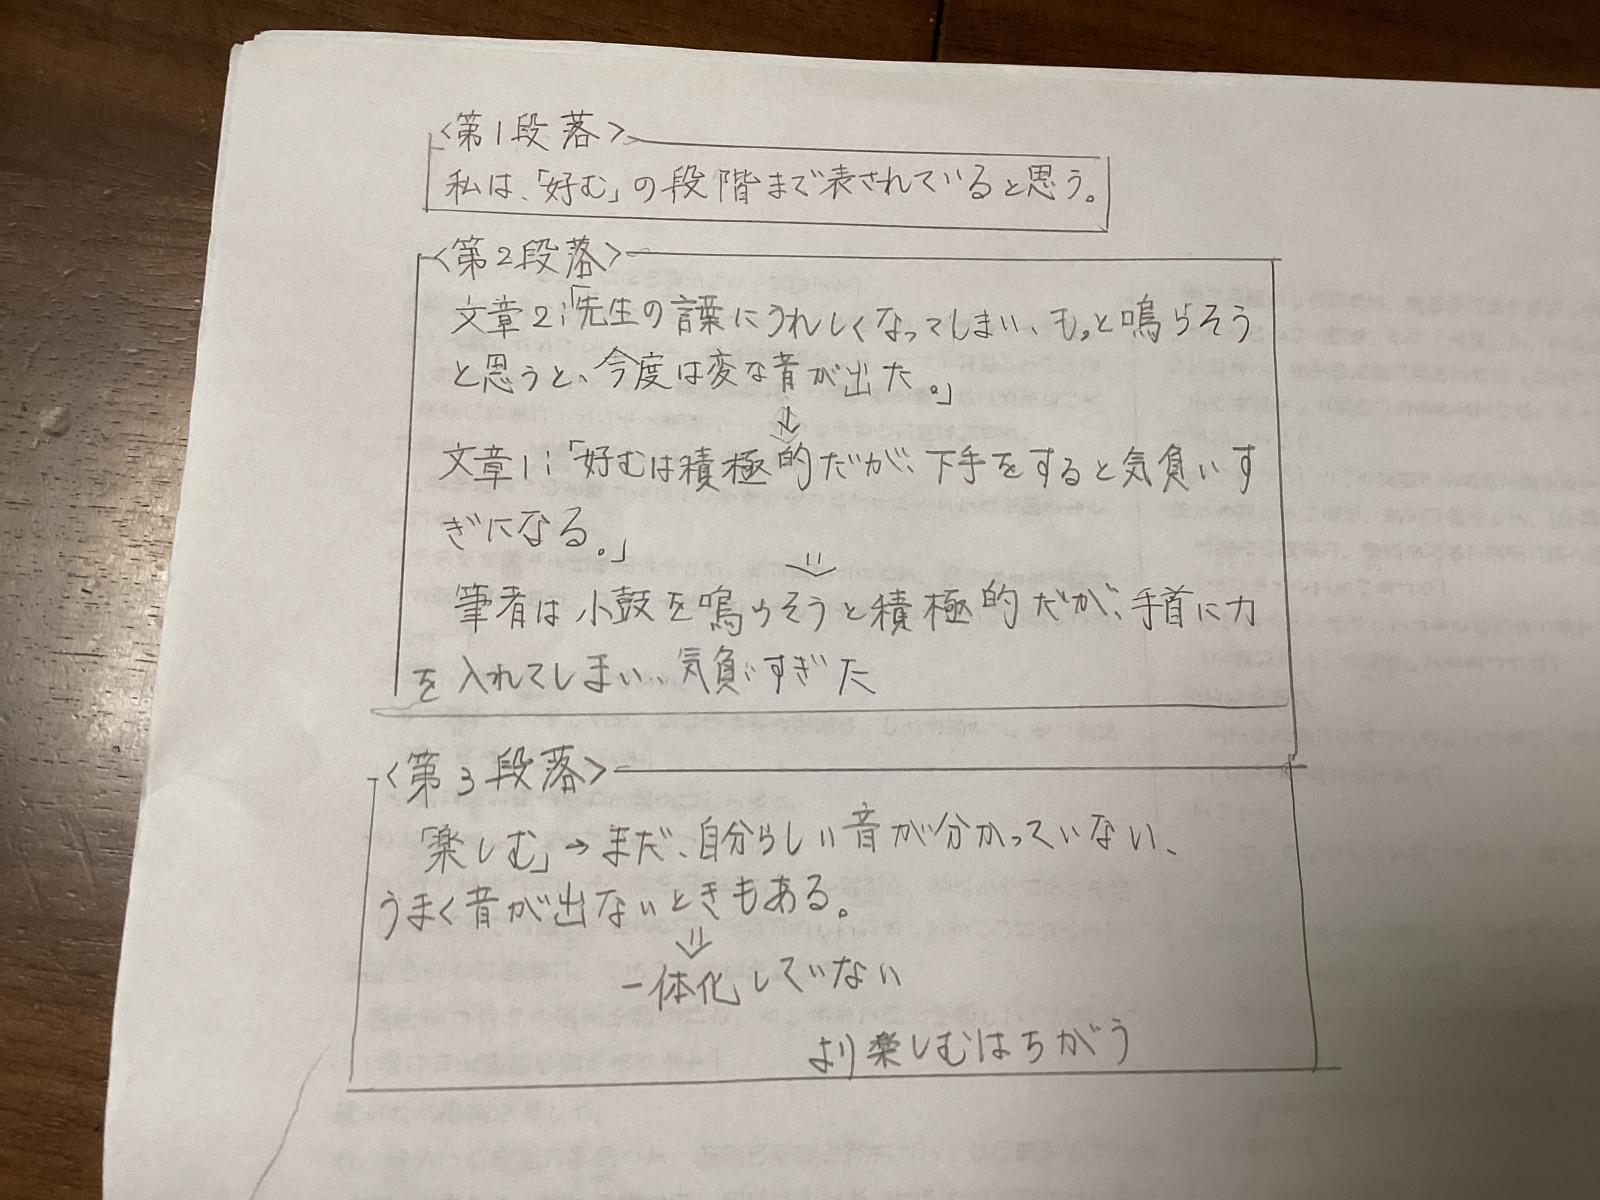 <第1段落>
私は、「好む」の段階まで表されていると思う。
<第2段落>
文章2:「先生の言葉にうれしくなってしまい、もっと鳴らそう
と思うと、今度は変な音が出た。」
文章1:「好むは積極的だが、下手をすると気負いす
ぎになる。」
筆者は小鼓を鳴らそうと積極的だが、手首に力
を入れてしまい、気負いすぎた
<第3段落>
「楽しむ」→まだ、自分らしい音が分かっていない、
うまく音が出ないときもある。
一体化していない
より楽しむはちがう